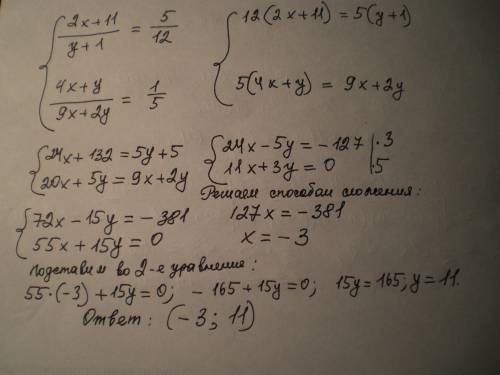 { (2x+11)/(y+1) = 5/12
(4x+y)/(9x+2y) = 1/5
{ 12(2x+11) = 5(y+1)
5(4x+y) = 9x+2y
{ 24x+132=5y+5
20x+5y=9x+2y
{ 24x-5y=-127 | ·3
11x+3y=0 | 5
Решаем способом сложения:
{ 72x-15y=-381
55x+15y=0
127x=-381
x=-3
подставим во 2-е уравнение:
55·(-3)+15y=0; -165+15y=0; 15y=165; y=11.
Ответ: (-3; 11)